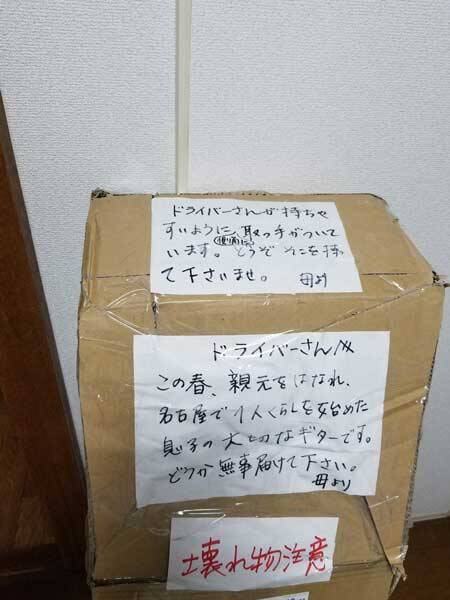 ドライバーさんが持ちや
すいように、取っ手がついて
います。どうぞそこを持っ
て下さいませ。 母より
ドライバーさんへ
この春、親元をはなれ、
名古屋で1人くらしを始めた
息子の大切なギターです。
どうか無事届けて下さい。
母より
壊れ物注意